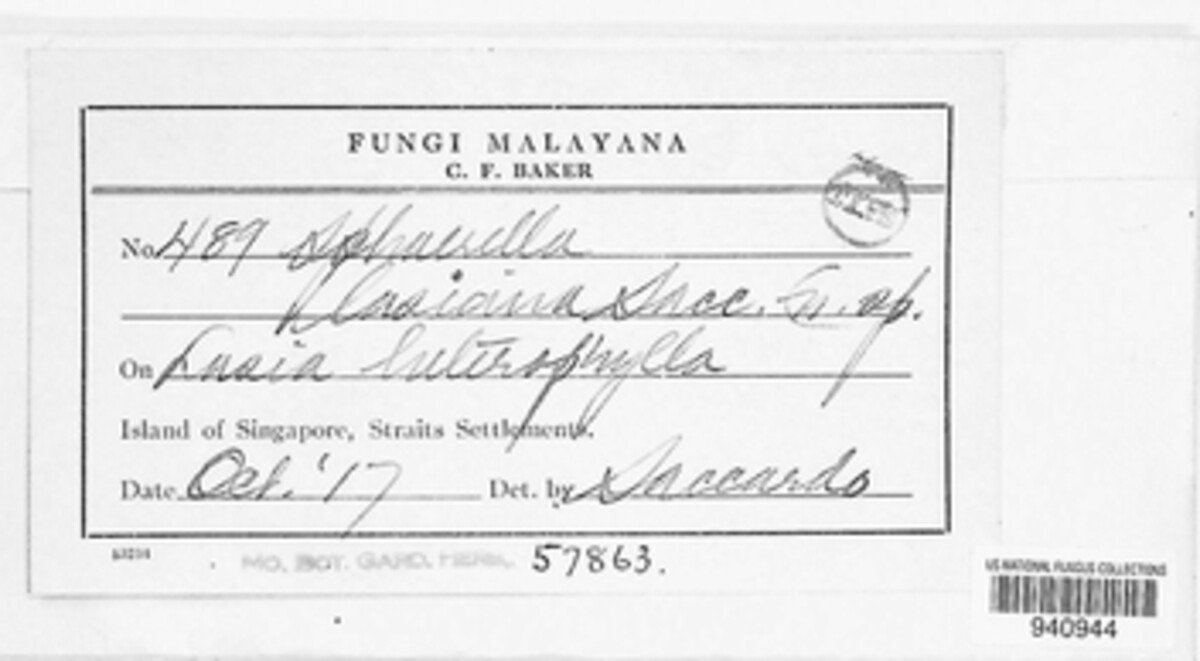 FUNGI MALAYANA
C. F. BAKER
No. 489 Sphaerella
Lasiaina Sacc. n. sp.
On Lasia heterophylla
Island of Singapore, Straits Settlements.
Date Oct. '17 Det. by Saccardo
MO. BOT. GARD. HERB. 57863.
US NATIONAL FUNGUS COLLECTIONS
940944